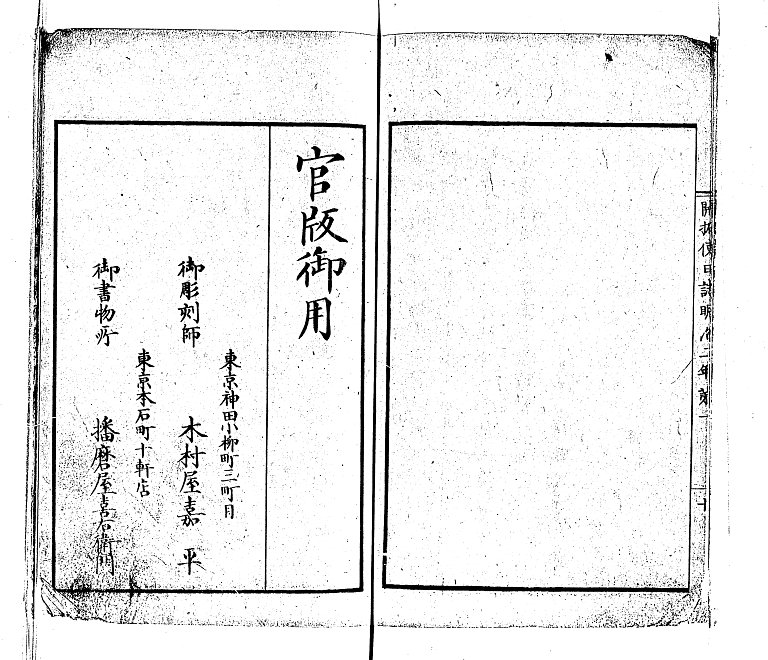 開拓使日誌明治二年第一
十
官版御用
東京神田小柳町三町目
御彫刻師
木村屋嘉平
東京本石町十軒店
御書物所
播磨屋喜右衛門